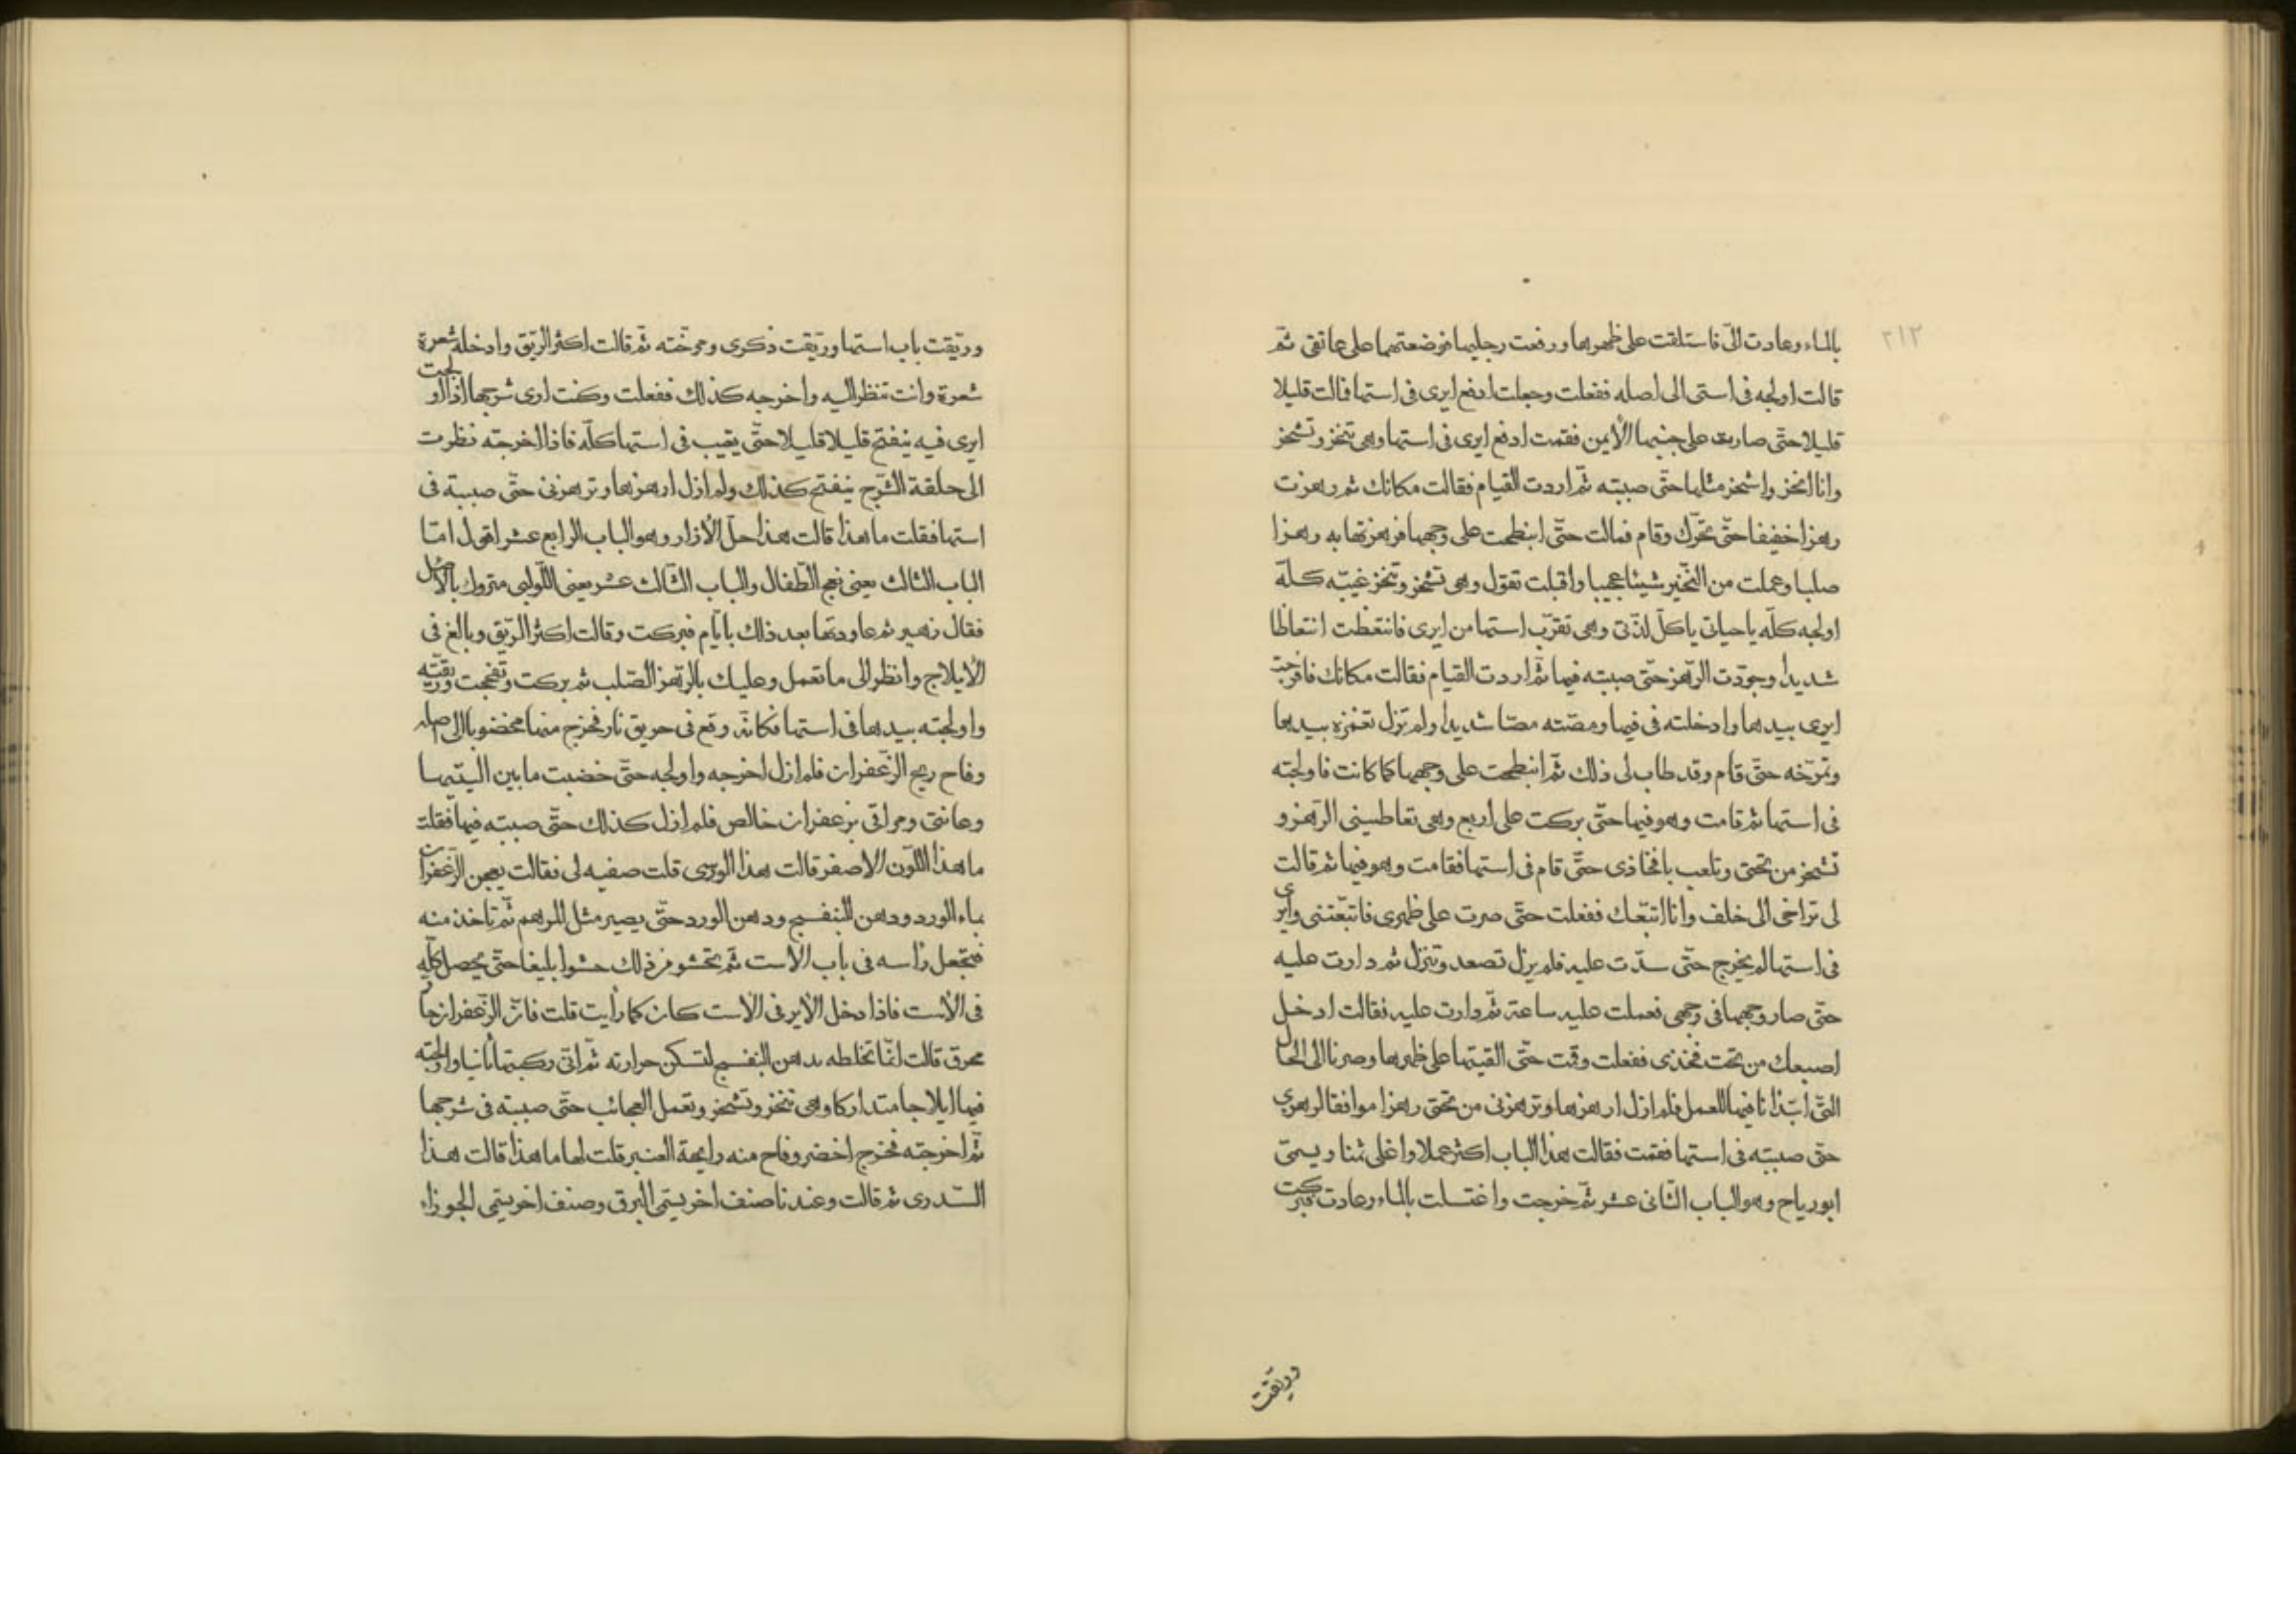 ٢١٢
بالماء وعادت الىّ فاستلقت على ظهرها ورفعت رجليها فوضعتهما على عاتقى ثمّ
قالت اولجه فى استى الى اصله ففعلت وجعلت ادفع ايرى فى استها فالت قليلا
قليلا حتّى صارت على جنبها الأيمن فقمت ادفع ايرى فى استها وهى تنخز وتشخز
وانا انخز واشخز مثلها حتّى صببته ثمّ اردت القيام فقالت مكانك ثم رهزت
رهزا خفيفا حتّى تحرّك وقام فمالت حتّى انبطحت على وجهها فرهزتها به رهزا
صلبا وعملت من النّخير شيئا عجيبا واقبلت تقول وهى تشخز وتنخز غيّبه كلّه
اولجه كلّه ياحياتى ياكلّ لذّتى وهى تقرّب استها من ايرى فانتغظت انتعاظا
شديدا وجوّدت الرّهز حتّى صببته فيها ثمّ اردت القيام فقالت مكانك فاخرجت
ايرى بيدها وادخلته فى فيها ومصّته مصّا شديدا ولم تزل تغمزه بيدها
وتمرّخه حتّى قام وقد طاب لى ذلك ثمّ انبطحت على وجهها كما كانت فاولجته
فى استها ثم قامت وهو فيها حتّى بركت على اربع وهى تعاطينى الرّهز و
تشخز من تحتى وتلعب بافخاذى حتّى قام فى استها فقامت وهو فيها ثم قالت
لى تراخى الى خلف وانا اتبّعك ففعلت حتّى صرت على ظهرى فاتبّعتنى وايرى
فى استها لم يخرج حتّى سدّت عليه فلم يزل تصعد وتنزل ثم دارت عليه
حتّى صار وجهها فى وجهى فعملت عليه ساعة ثمّ دارت عليه فقالت ادخل
اصبعك من تحت فخذى ففعلت وقمت حتّى القيتها على ظهرها وصرنا الى الحال
التى ابتدانا فيها للعمل فلم ازل ارهزها وترهزنى من تحتى رهزا موافقا لرهزى
حتّى صببته فى استها فقمت فقالت هذا الباب اكثر عملا واغلى ثمنا ويسمّى
ابورياح وهو الباب الثّانى عشر ثمّ خرجت واغتسلت بالماء وعادت فبركت
وريّقت
وريّقت باب استها وريّقت ذكرى ومرخته ثم قالت اكثر الرّيق وادخله شعرة
شعرة وانت تنظر اليه واخرجه كذلك ففعلت وكنت ارى شرجها اذا اولجت
ايرى فيه ينفتح قليلا قليلا حتّى يغيب فى استها كلّه فاذا اخرجته نظرت
الى حلقة الشّرج ينفتح كذلك ولم ازل ارهزها وترهزنى حتّى صببته فى
استها فقلت ما هذا قالت هذا حلّ الأزرار وهو الباب الرابع عشر اقول امّا
الباب الثالث يعنى نعج الطفال والباب الثّالث عشر يعنى اللّولبى متروك بالأصل
فقال زهير ثم عاودتها بعد ذلك بايّام فبركت وقالت اكثر الرّيق وبالغ فى
الأيلاج وانظر الى ما تعمل وعليك بالرّهز الصّلب ثم بركت وتفحجت وريّقته
واولجته بيدها فى استها فكانّه وقع فى حريق نار فخرج منها مخضوبا الى اصله
وفاح ريح الزعفران فلم ازل اخرجه واولجه حتّى خضبت ما بين اليتيها
وعانتى ومراقى بزعفران خالص فلم ازل كذلك حتّى صببته فيها فقلت
ما هذا اللّون الاصفر قالت هذا الورسى قلت صفيه لى فقالت يعجن الزّعفران
بماء الورد ودهن البنفسج ودهن الورد حتّى يصير مثل المرهم ثمّ تاخذ منه
فتجعل راسه فى باب الأست ثم تحشو من ذلك حشوا بليغا حتّى يحصل كلّه
فى الأست فاذا دخل الأير فى الأست كان كما رأيت قلت فانّ الزّعفران حارّ
محرق قالت انّما تخلطه بدهن البنفسج لتسكن حرارته ثمّ انّى ركبتها ثانيا واولجته
فيها ايلاجا متداركا وهى تنخز وتشخز وتعمل العجائب حتّى صببته فى شرجها
ثمّ اخرجته فخرج اخضر وفاح منه رايحة العنبر قلت لها ما هذا قالت هذا
السّدرى ثم قالت وعندنا صنف اخر يسمّى البرق وصنف اخر يسمّى الجوزاء